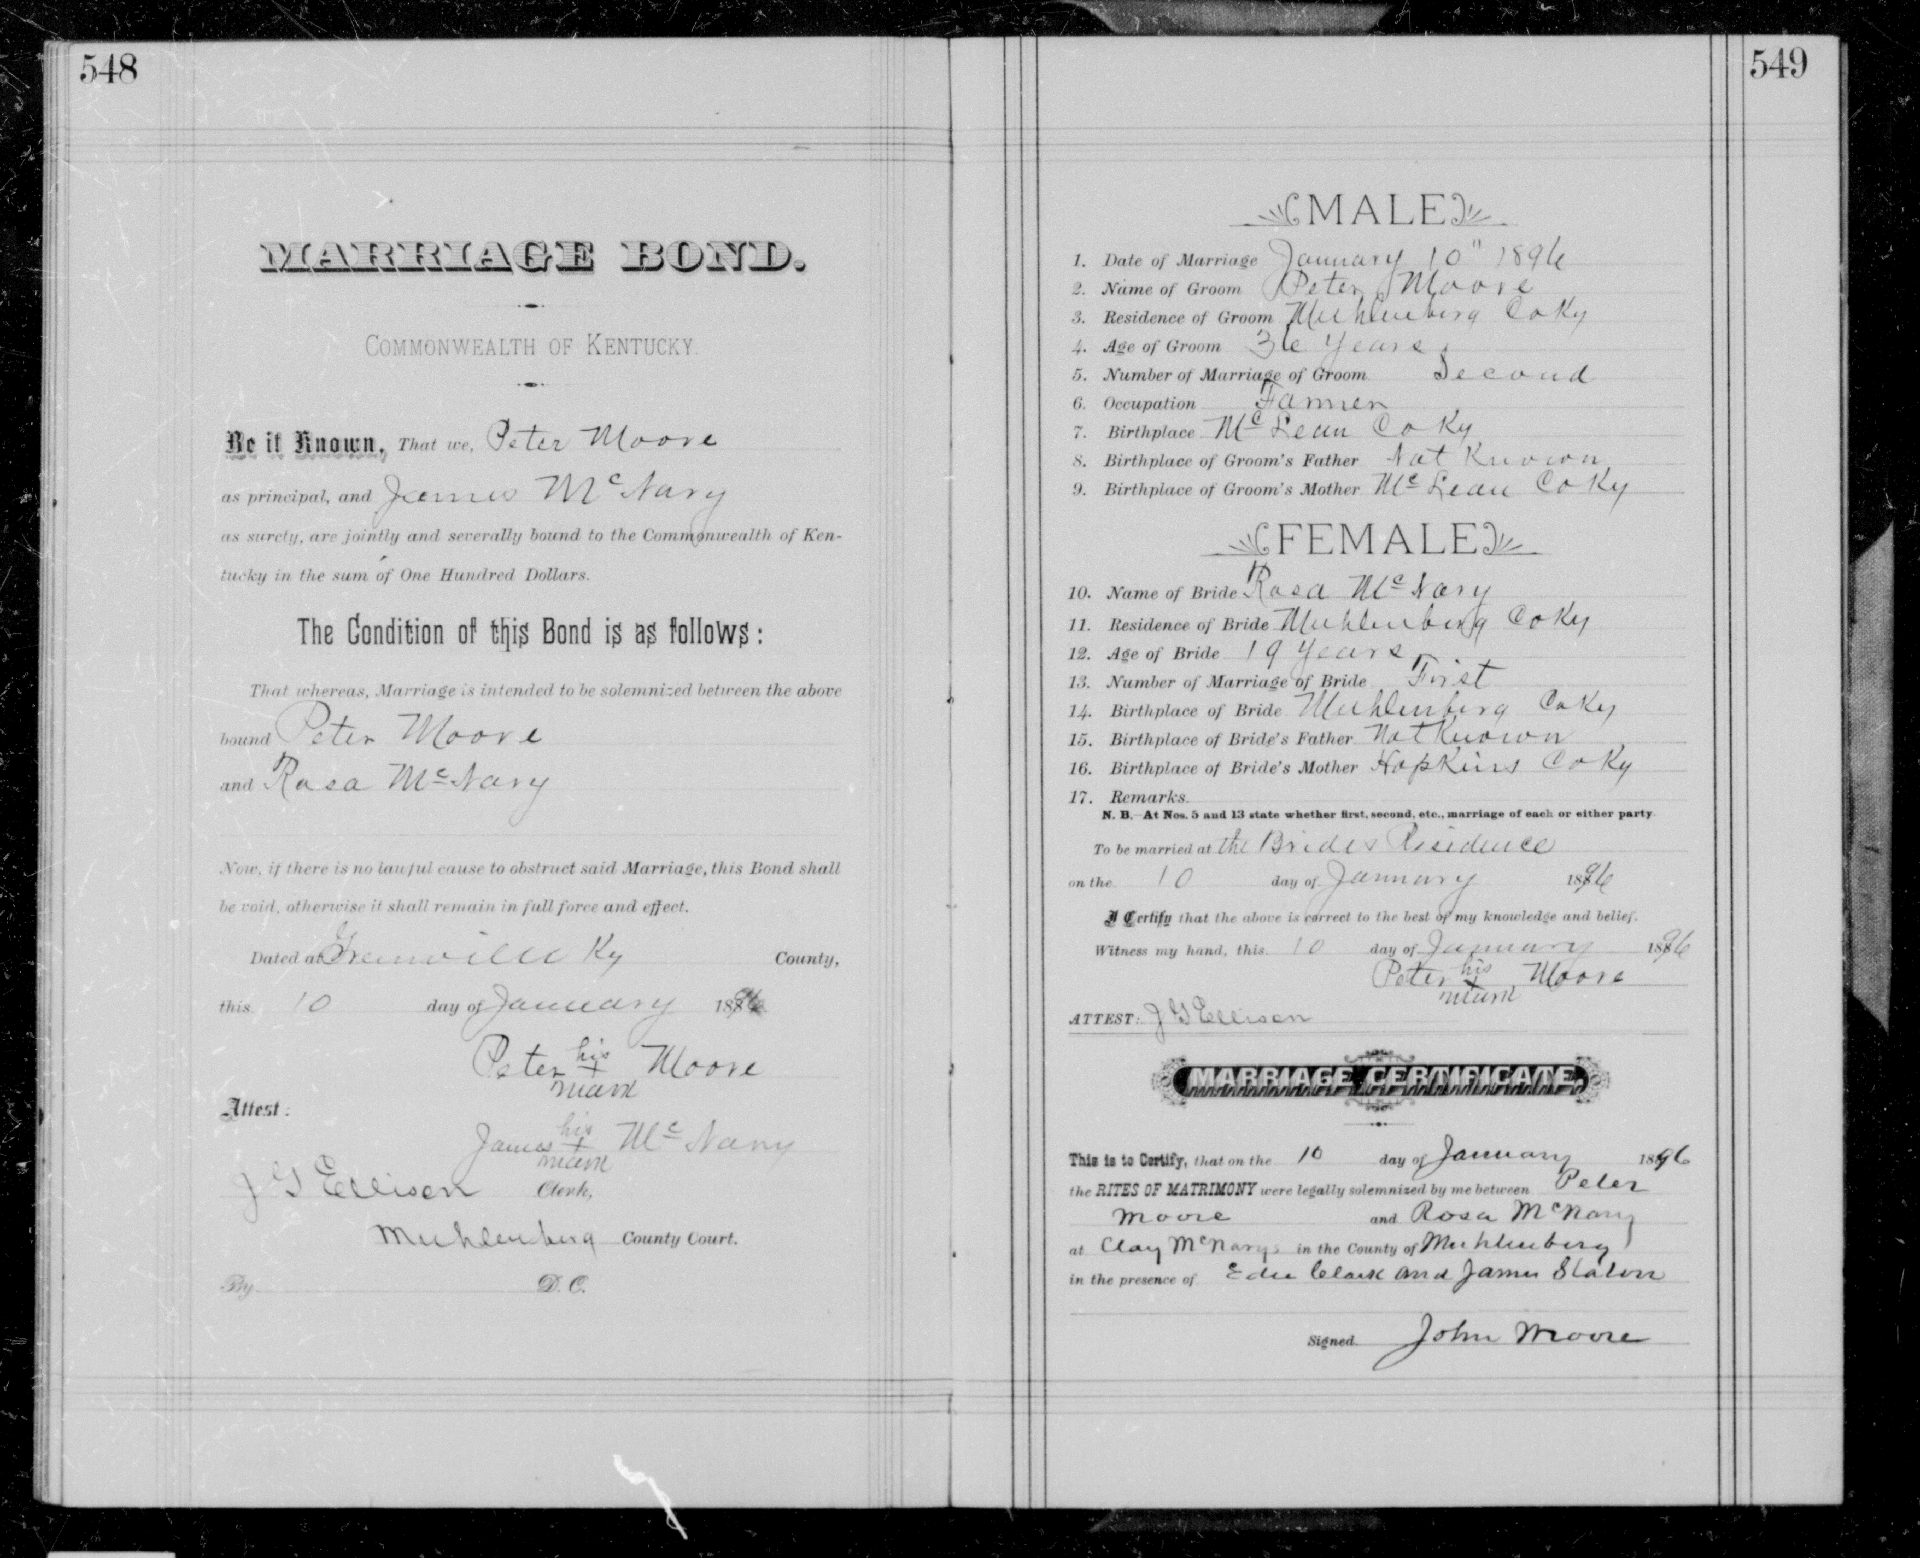 548
MARRIAGE BOND.
COMMONWEALTH OF KENTUCKY.
Be it Known, That we, Peter Moore
as principal, and James McNary
as surety, are jointly and severally bound to the Commonwealth of Ken-
tucky in the sum of One Hundred Dollars.
The Condition of this Bond is as follows:
That whereas, Marriage is intended to be solemnized between the above
bound Peter Moore
and Rosa McNary
Now, if there is no lawful cause to obstruct said Marriage, this Bond shall
be void, otherwise it shall remain in full force and effect.
Dated at Greenville Ky County,
this 10 day of January 1896
Peter his x mark Moore
Attest:
James his x mark McNary
J G Ellison Clerk,
Muhlenberg County Court.
By D. C.
549
MALE
1. Date of Marriage January 10" 1896
2. Name of Groom Peter Moore
3. Residence of Groom Muhlenberg Co Ky
4. Age of Groom 36 Years
5. Number of Marriage of Groom Second
6. Occupation Farmer
7. Birthplace McLean Co Ky
8. Birthplace of Groom's Father Not Known
9. Birthplace of Groom's Mother McLean Co Ky
FEMALE
10. Name of Bride Rosa McNary
11. Residence of Bride Muhlenberg Co Ky
12. Age of Bride 19 Years
13. Number of Marriage of Bride First
14. Birthplace of Bride Muhlenberg Co Ky
15. Birthplace of Bride's Father Not Known
16. Birthplace of Bride's Mother Hopkins Co Ky
17. Remarks.
N. B. At Nos. 5 and 13 state whether first, second, etc., marriage of each or either party
To be married at the Brides Residence
on the 10 day of January 1896
I Certify that the above is correct to the best of my knowledge and belief.
Witness my hand, this 10 day of January 1896
Peter his x mark Moore
ATTEST: J G Ellison
MARRIAGE CERTIFICATE.
This is to Certify, that on the 10 day of January 1896
the RITES OF MATRIMONY were legally solemnized by me between Peter
Moore and Rosa McNary
at Clay McNarys in the County of Muhlenberg
in the presence of Edie Clark and James Slaton
Signed. John Moore